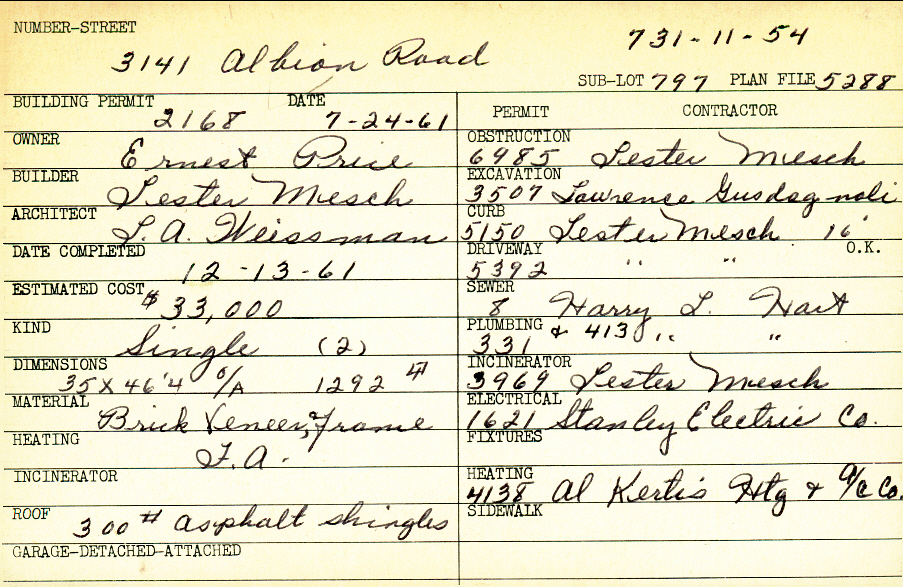 NUMBER-STREET
3141 Albion Road
731-11-54
SUB-LOT 797 PLAN FILE 5288
BUILDING PERMIT 2168 DATE 7-24-61
OWNER Ernest Price
BUILDER Lester Mesch
ARCHITECT L. A. Weissman
DATE COMPLETED 12-13-61
ESTIMATED COST $33,000
KIND Single (2)
DIMENSIONS 35 X 46'4 O/A 1292
MATERIAL Brick Veneer, Frame
HEATING F.A.
INCINERATOR
ROOF 300# asphalt shingles
GARAGE-DETACHED-ATTACHED
PERMIT CONTRACTOR
OBSTRUCTION
6985 Lester Mesch
EXCAVATION
3507 Lawrence Gusdagnoli
CURB
5150 Lester Mesch 16'
DRIVEWAY O.K.
5392 " "
SEWER
8 Harry L. Hart
PLUMBING
331 & 413 " "
INCINERATOR
3969 Lester Mesch
ELECTRICAL
1621 Stanley Electric Co.
FIXTURES
HEATING
4138 Al Kertis Htg & A/C Co.
SIDEWALK